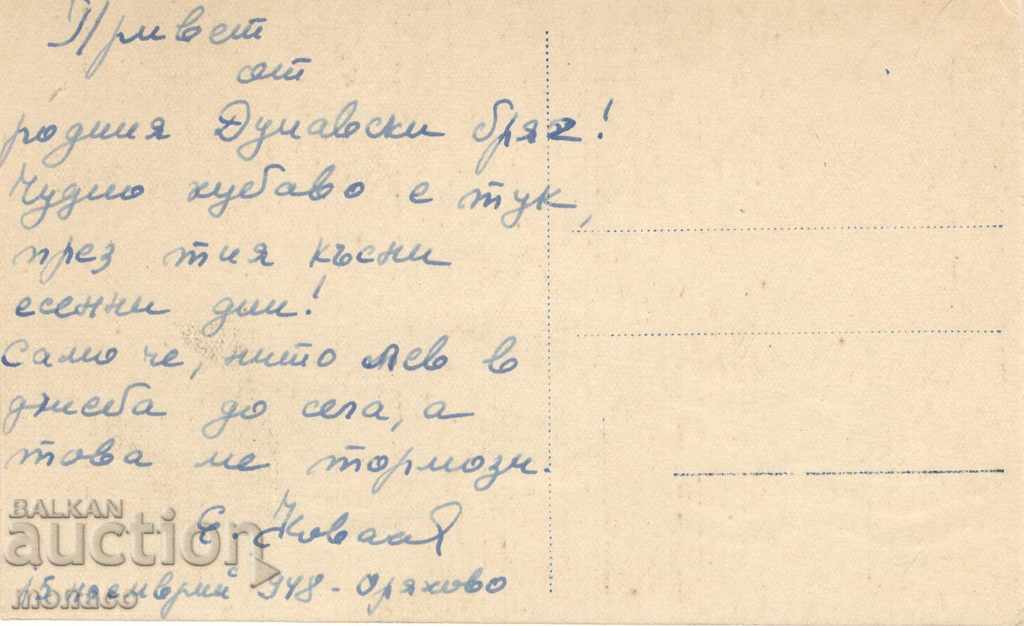 Привет
от
родния Дунавски бряг!
Чудно хубаво е тук,
през тия късни
есенни дни!
Само че, нито лев в
джеба до сега, а
това ме тормози.
Е.
15 ноемврий 948 - Оряхово
BALKAN
auction
monaco